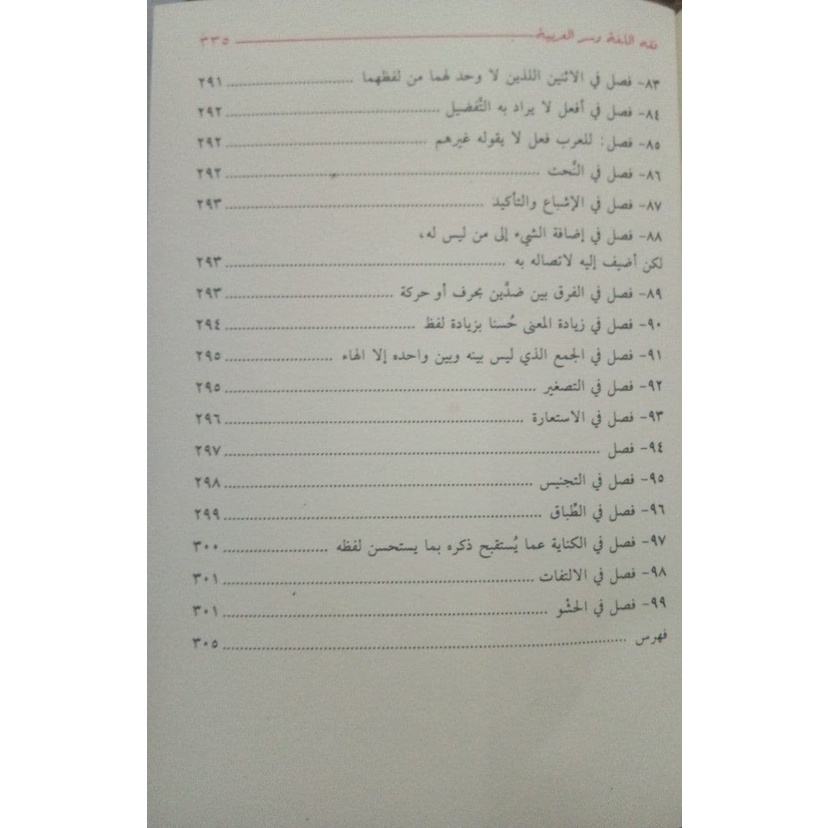 فقه اللغة وسر العربية ٣٣٥
٨٣- فصل في الاثنين اللذين لا وحد لهما من لفظهما ٢٩١
٨٤- فصل في أفعل لا يراد به التُّفضيل ٢٩٢
٨٥- فصل: للعرب فعل لا يقوله غيرهم ٢٩٢
٨٦- فصل في النَّحت ٢٩٢
٨٧- فصل في الإشباع والتأكيد ٢٩٣
٨٨- فصل في إضافة الشيء إلى من ليس له،
لكن أضيف إليه لاتصاله به ٢٩٣
٨٩- فصل في الفرق بين ضدَّين بحرف أو حركة ٢٩٣
٩٠- فصل في زيادة المعنى حُسنا بزيادة لفظ ٢٩٤
٩١- فصل في الجمع الذي ليس بينه وبين واحده إلا الهاء ٢٩٥
٩٢- فصل في التصغير ٢٩٥
٩٣- فصل في الاستعارة ٢٩٦
٩٤- فصل ٢٩٧
٩٥- فصل في التجنيس ٢٩٨
٩٦- فصل في الطِّباق ٢٩٩
٩٧- فصل في الكناية عما يُستقبح ذكره بما يستحسن لفظه ٣٠٠
٩٨- فصل في الالتفات ٣٠١
٩٩- فصل في الحشْو ٣٠١
فهرس ٣٠٥